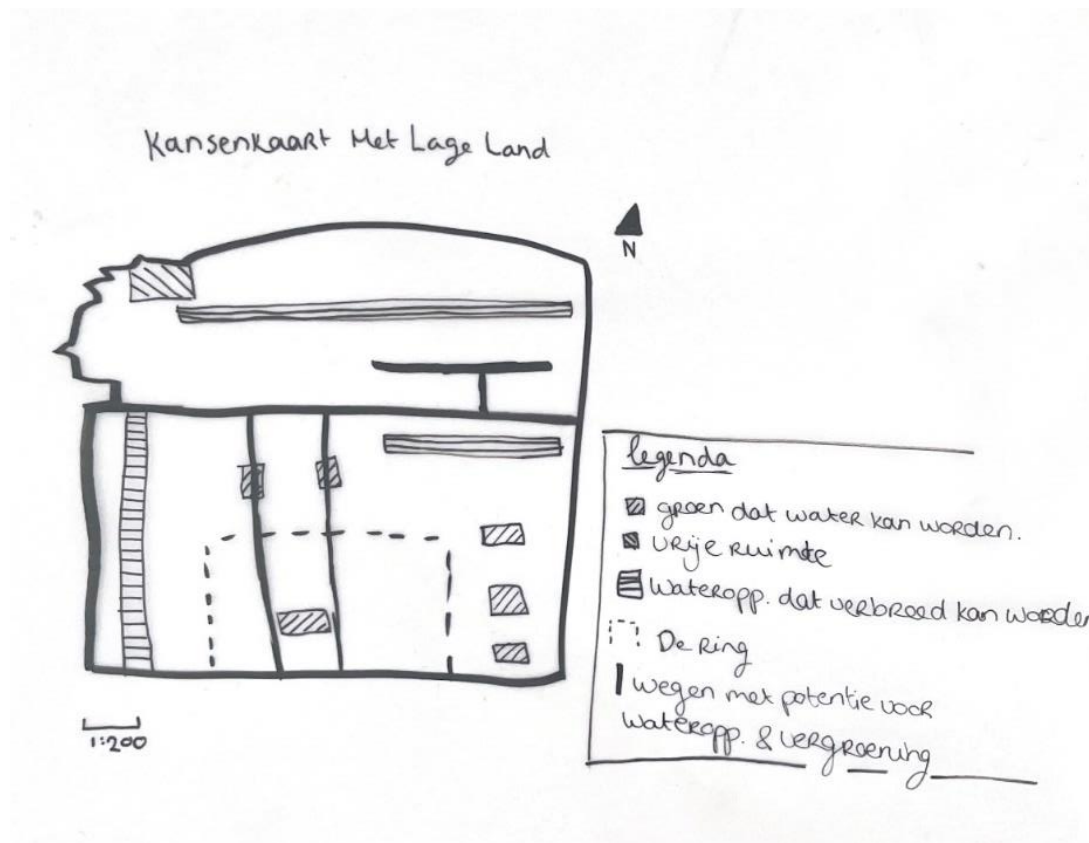 Kansenkaart Het Lage Land
N
legenda
groen dat water kan worden.
vrije ruimte
Wateropp. dat verbreed kan worden
De Ring
wegen met potentie voor
wateropp. & vergroening
1:200